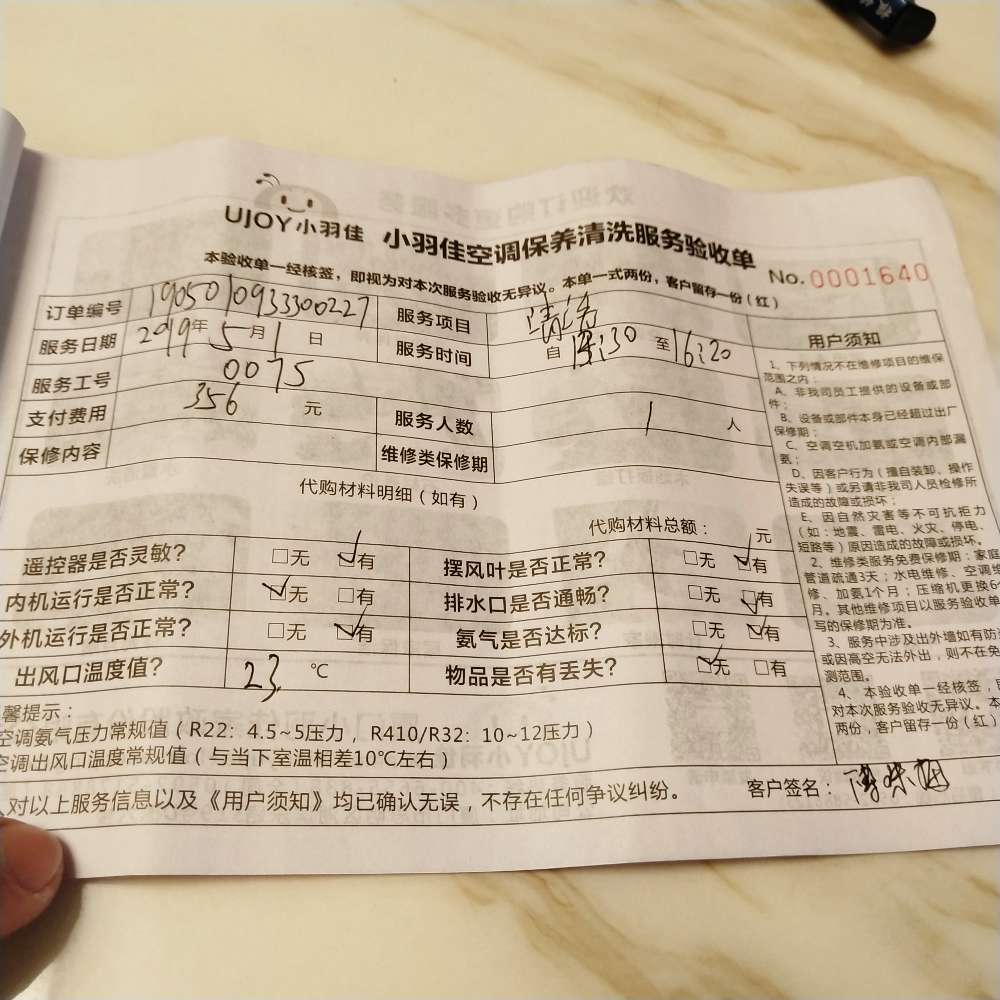 UJOY小羽佳 小羽佳空调保养清洗服务验收单
No.0001640
本验收单一经核签，即视为对本次服务验收无异议。本单一式两份，客户留存一份（红）
订单编号 190501093330022​7 服务项目 清洗
服务日期 2019年5月1日 服务时间 自 :30 至 16:20
服务工号 0075
支付费用 356 元 服务人数 1 人
保修内容 维修类保修期
代购材料明细（如有）
代购材料总额： 元
遥控器是否灵敏？ □无 ☑有 摆风叶是否正常？ □无 ☑有
内机运行是否正常？ ☑无 □有 排水口是否通畅？ □无 ☑有
外机运行是否正常？ □无 ☑有 氨气是否达标？ □无 ☑有
出风口温度值？ 23 ℃ 物品是否有丢失？ ☑无 □有
馨提示：
空调氨气压力常规值（R22：4.5~5压力，R410/R32：10~12压力）
空调出风口温度常规值（与当下室温相差10℃左右）
对以上服务信息以及《用户须知》均已确认无误，不存在任何争议纠纷。 客户签名：
用户须知
1、下列情况不在维修项目的维保
范围之内：
A、非我司员工提供的设备或部
件；
B、设备或部件本身已经超过出厂
保修期；
C、空调空机加氨或空调内部漏
氨；
D、因客户行为（擅自装卸、操作
失误等）或另请非我司人员检修所
造成的故障或损坏；
E、因自然灾害等不可抗拒力
（如：地震、雷电、火灾、停电、
短路等）原因造成的故障或损坏。
2、维修类服务免费保修期：家庭
管道疏通3天；水电维修、空调维
修、加氨1个月；压缩机更换6
月。其他维修项目以服务验收单
写的保修期为准。
3、服务中涉及出外墙如有防
或因高空无法外出，则不在免
测范围。
4、本验收单一经核签，
对本次服务验收无异议。本
两份，客户留存一份（红）